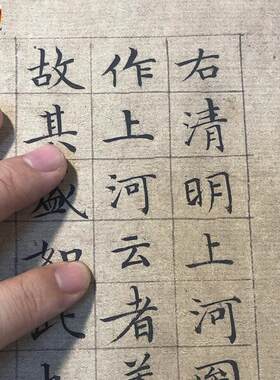 右清明上河
作上河云者
故其盛如